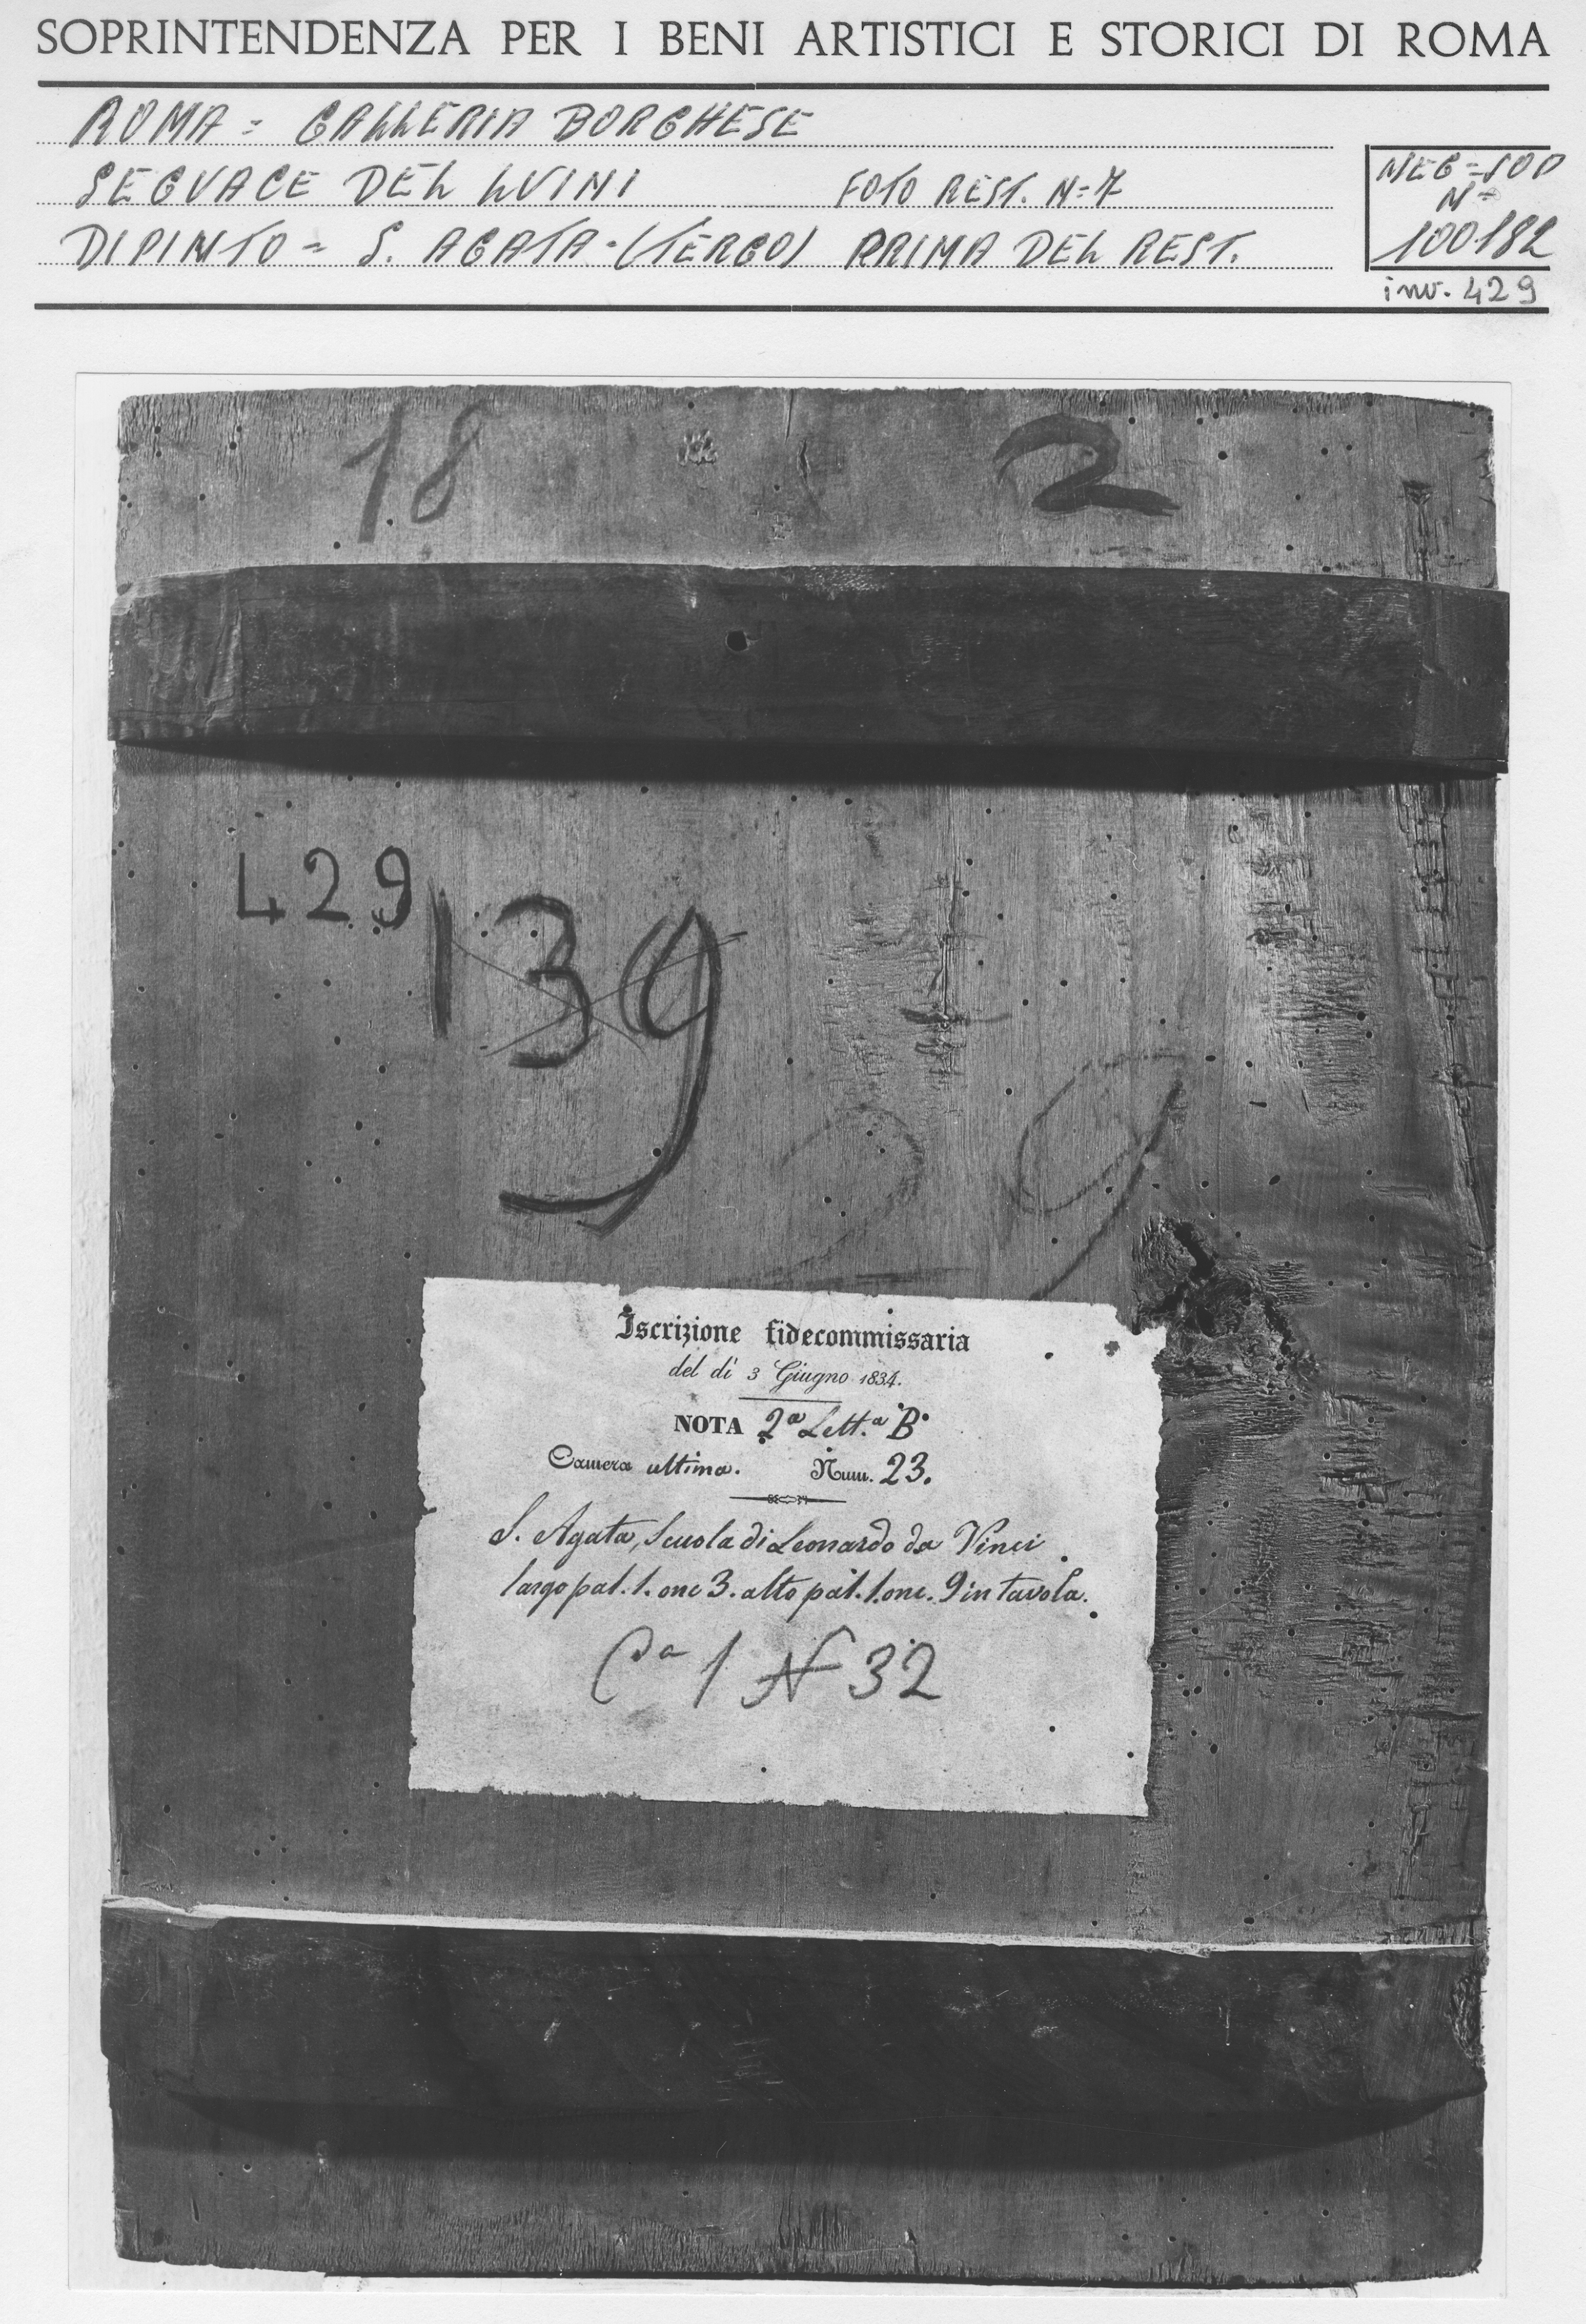 SOPRINTENDENZA PER I BENI ARTISTICI E STORICI DI ROMA
ROMA = GALLERIA BORGHESE
SEGUACE DEL LUINI FOTO REST. N=7
DIPINTO = S. AGATA-(TERGO) PRIMA DEL REST.
NEG=SOP
N=
100182
inv. 429
18 2
429
139
39
Iscrizione fidecommissaria
del dì 3 Giugno 1834.
NOTA 2ª Lett.ª B.
Camera ultima. Num. 23.
S. Agata, Scuola di Leonardo da Vinci
largo pal. 1. onc 3. alto pal. 1. onc. 9 in tavola.
Cª 1 N 32